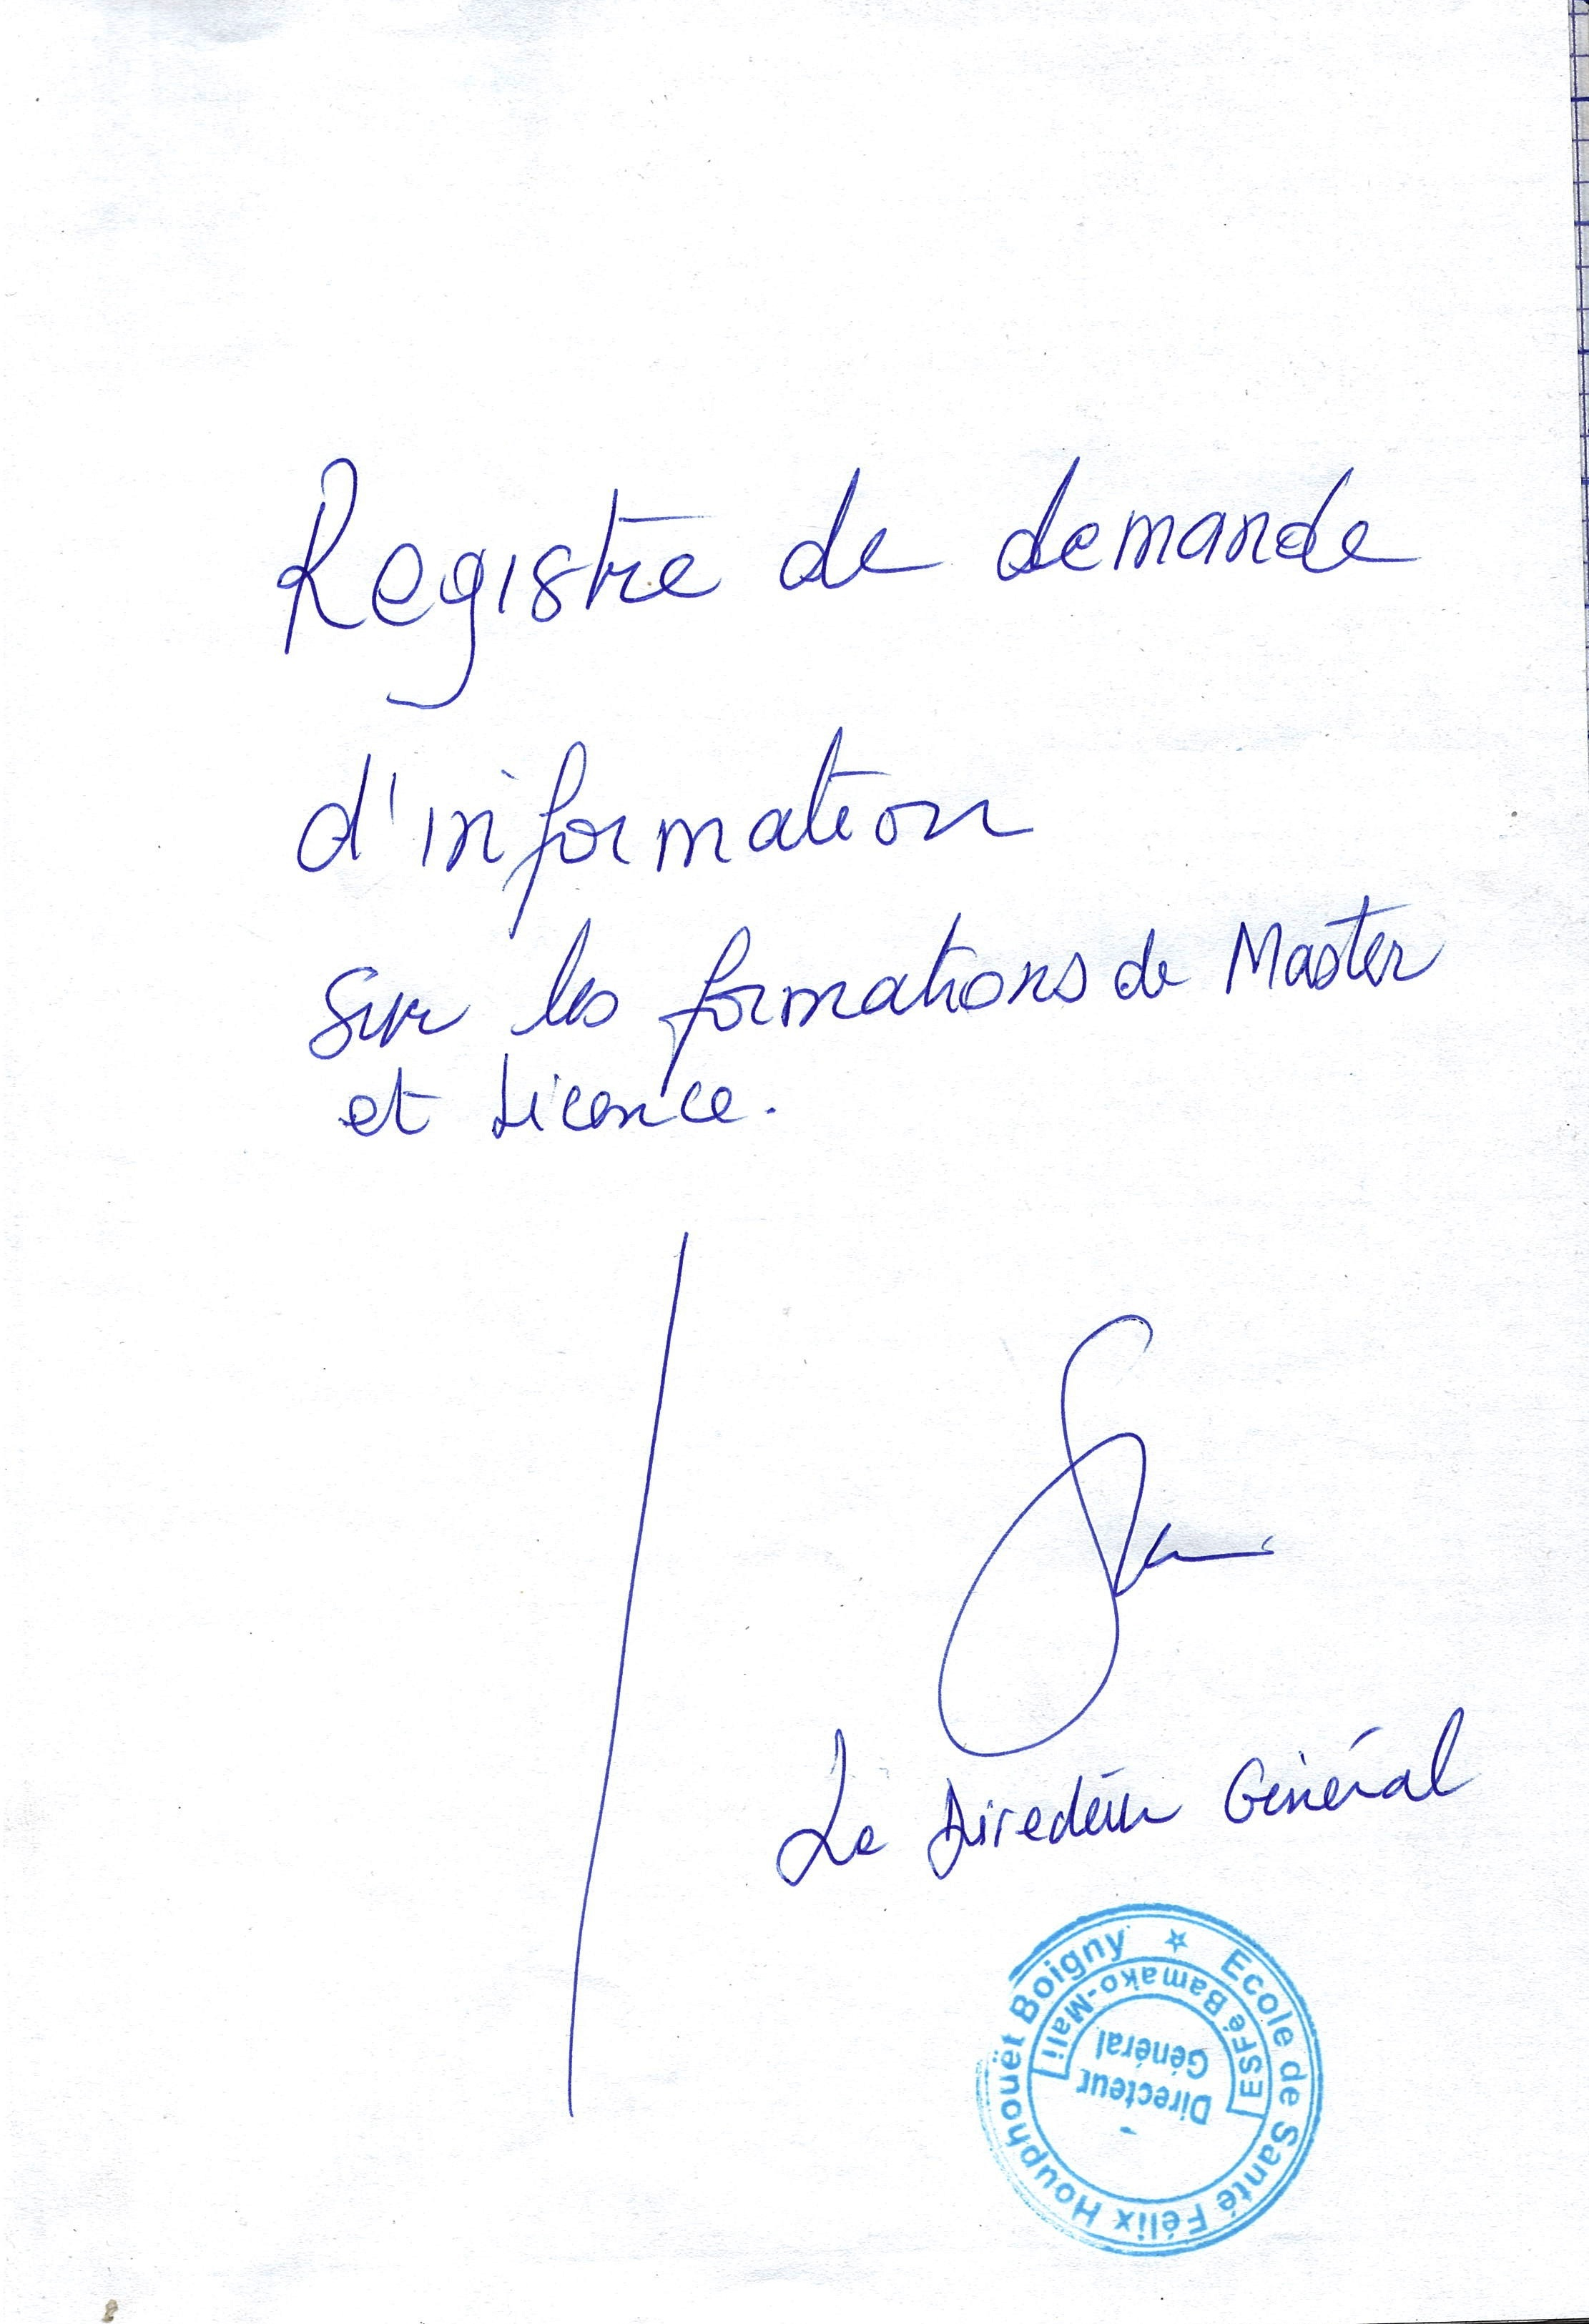 Registre de demande
d'information
sur les formations de Master
et Licence.
Le Directeur Général
Ecole de Santé Félix Houphouët Boigny
ESFé Bamako-Mali
Directeur
Général